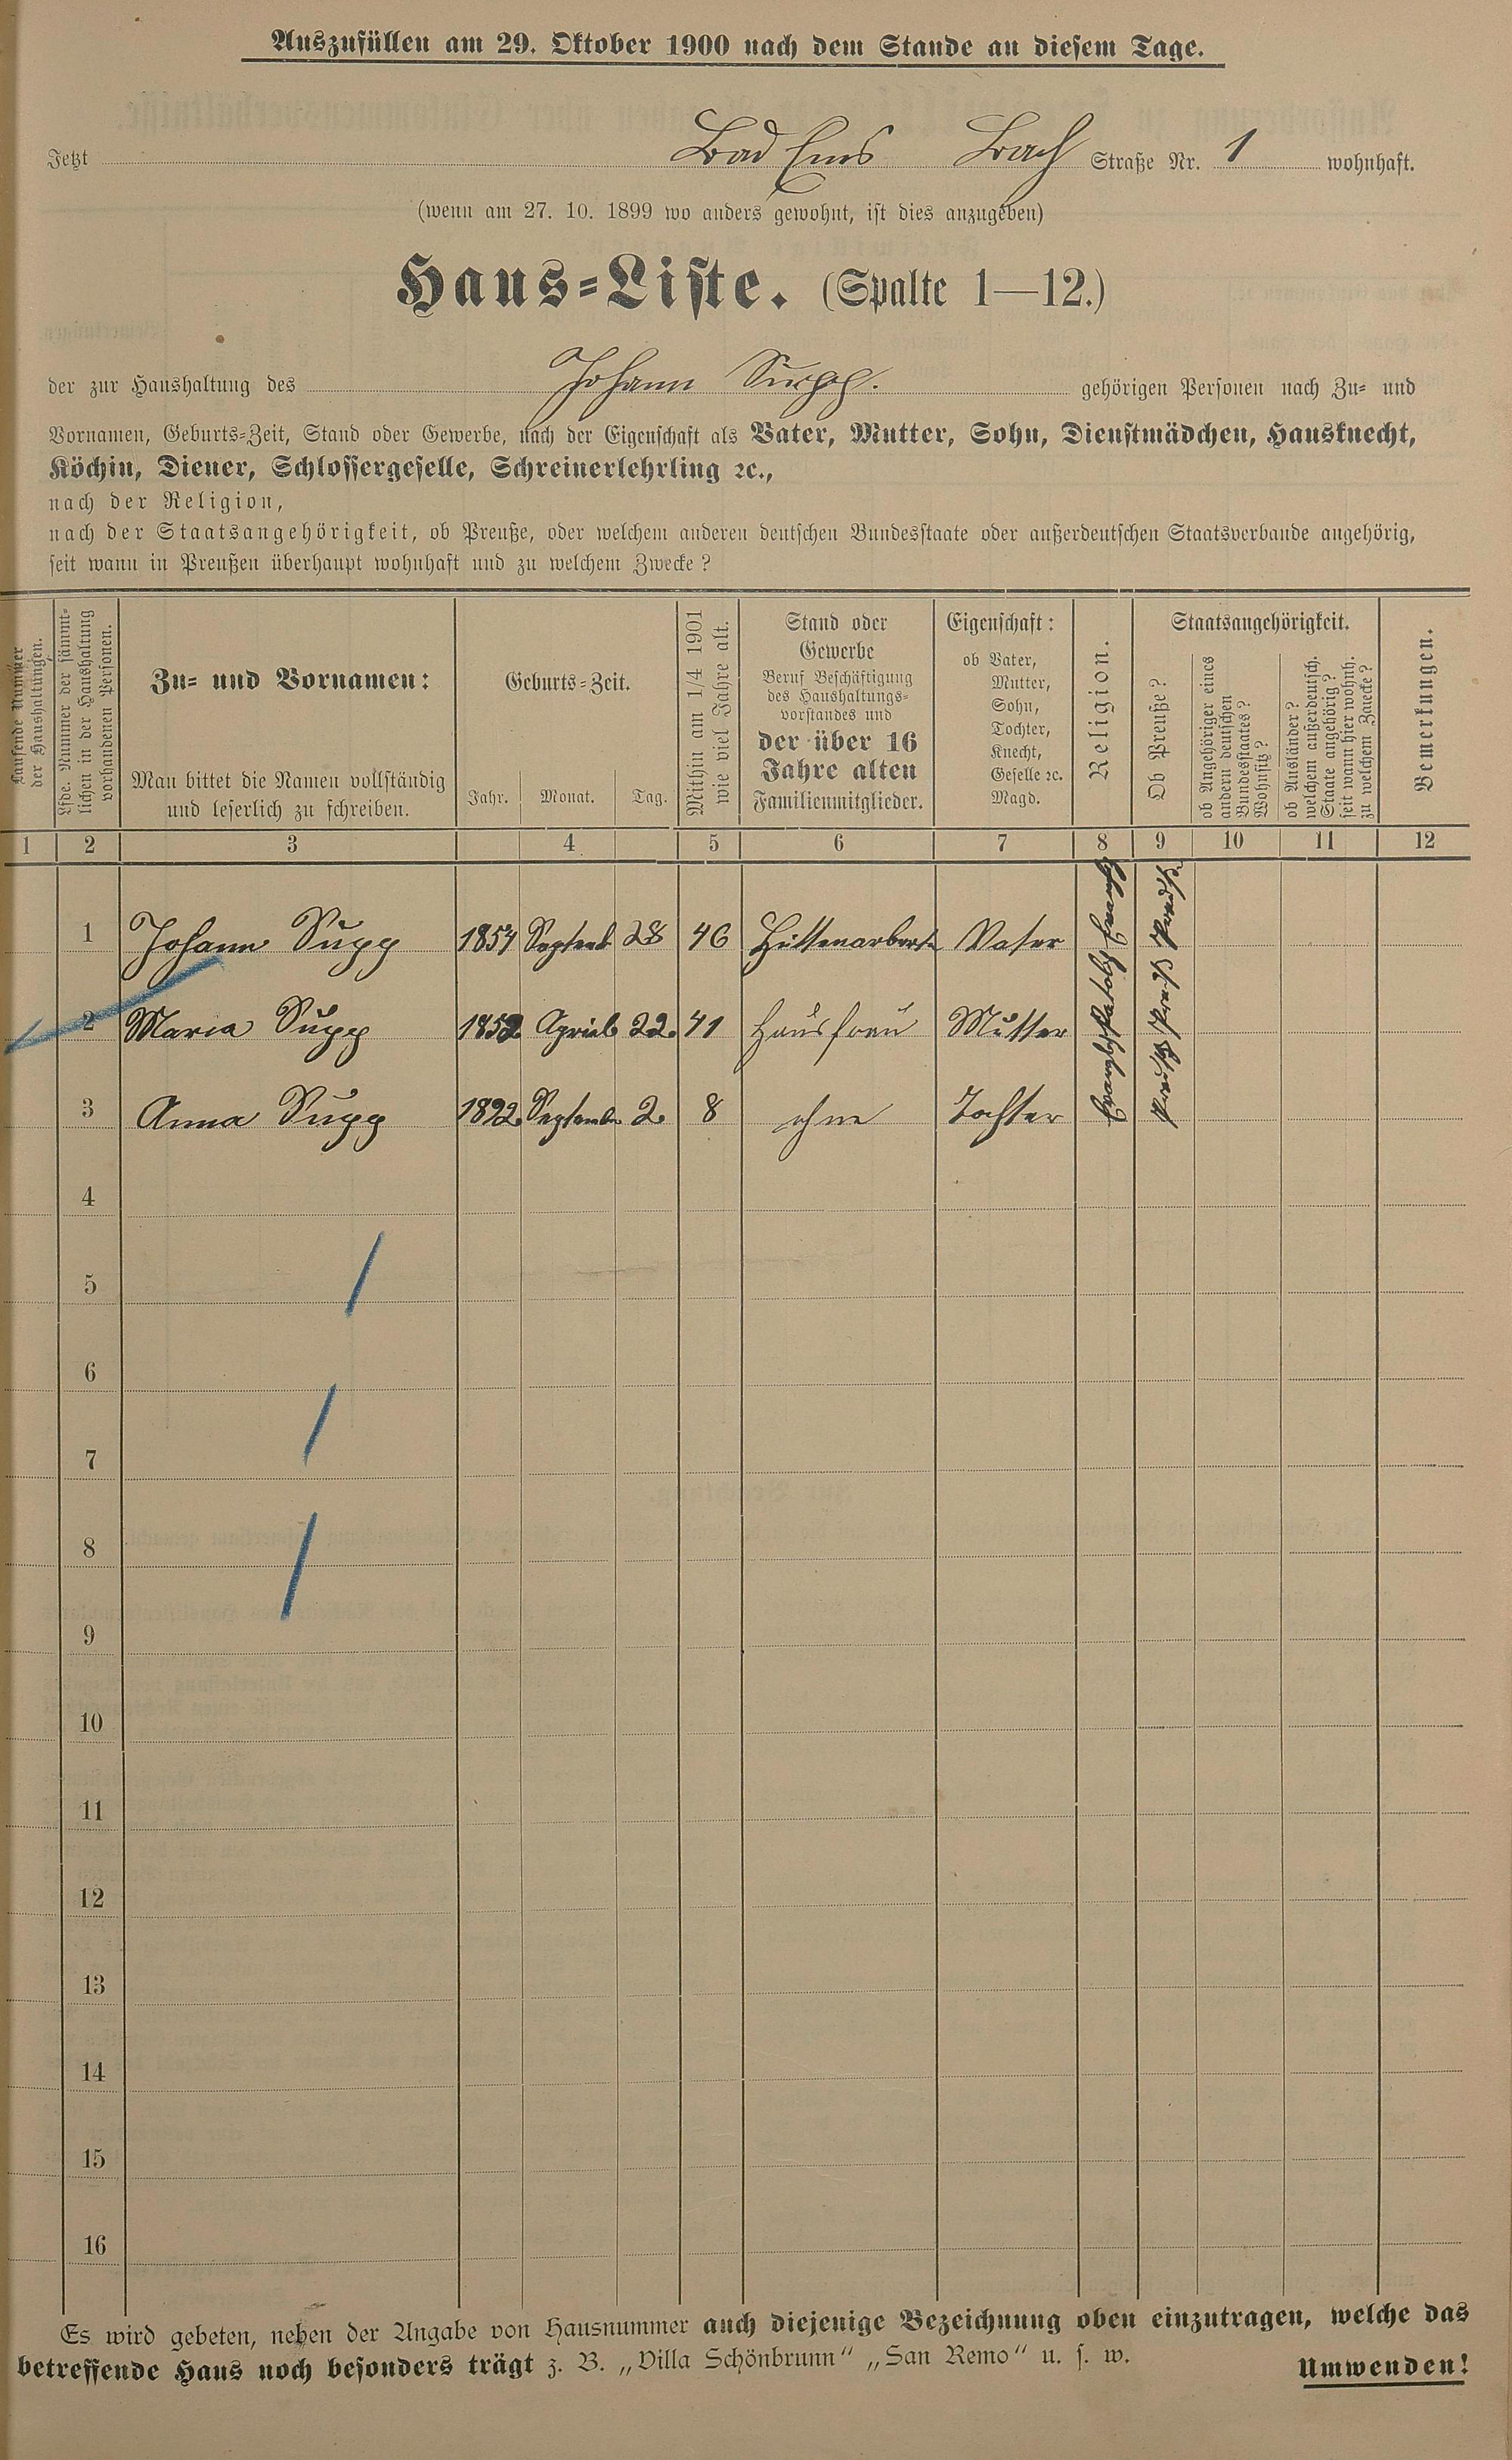 Auszufüllen am 29. Oktober 1900 nach dem Stande an diesem Tage.
Jetzt Bad Ems Bach Straße Nr. 1 wohnhaft.
(wenn am 27. 10. 1899 wo anders gewohnt, ist dies anzugeben)
Haus-Liste. (Spalte 1—12.)
der zur Haushaltung des Johann Supp. gehörigen Personen nach Zu- und
Vornamen, Geburts-Zeit, Stand oder Gewerbe, nach der Eigenschaft als Vater, Mutter, Sohn, Dienstmädchen, Hausknecht,
Köchin, Diener, Schlossergeselle, Schreinerlehrling ꝛc.,
nach der Religion,
nach der Staatsangehörigkeit, ob Preuße, oder welchem anderen deutschen Bundesstaate oder außerdeutschen Staatsverbande angehörig,
seit wann in Preußen überhaupt wohnhaft und zu welchem Zwecke?
Laufende Nummer
der Haushaltungen.
Lfde. Nummer der sämmt-
lichen in der Haushaltung
vorhandenen Personen.
Zu- und Vornamen:
Man bittet die Namen vollständig
und leserlich zu schreiben.
Geburts-Zeit.
Jahr. Monat. Tag.
Mithin am 1/4 1901
wie viel Jahre alt.
Stand oder
Gewerbe
Beruf Beschäftigung
des Haushaltungs-
vorstandes und
der über 16
Jahre alten
Familienmitglieder.
Eigenschaft:
ob Vater,
Mutter,
Sohn,
Tochter,
Knecht,
Geselle ꝛc.
Magd.
Religion.
Staatsangehörigkeit.
Ob Preuße?
ob Angehöriger eines
andern deutschen
Bundesstaates?
Wohnsitz?
ob Ausländer?
welchem außerdeutsch.
Staate angehörig?
seit wann hier wohnh.
zu welchem Zwecke?
Bemerkungen.
1 2 3 4 5 6 7 8 9 10 11 12
1 Johann Supp 1854 Septemb. 28 46 Hüttenarbeiter Vater
2 Maria Supp April 22. 41 Hausfrau Mutter
3 Anna Supp 1892. Septembr 2. 8 ohne Tochter
4
5
6
7
8
9
10
11
12
13
14
15
16
Es wird gebeten, neben der Angabe von Hausnummer auch diejenige Bezeichnung oben einzutragen, welche das
betreffende Haus noch besonders trägt z. B. „Villa Schönbrunn" „San Remo" u. s. w.
Umwenden!